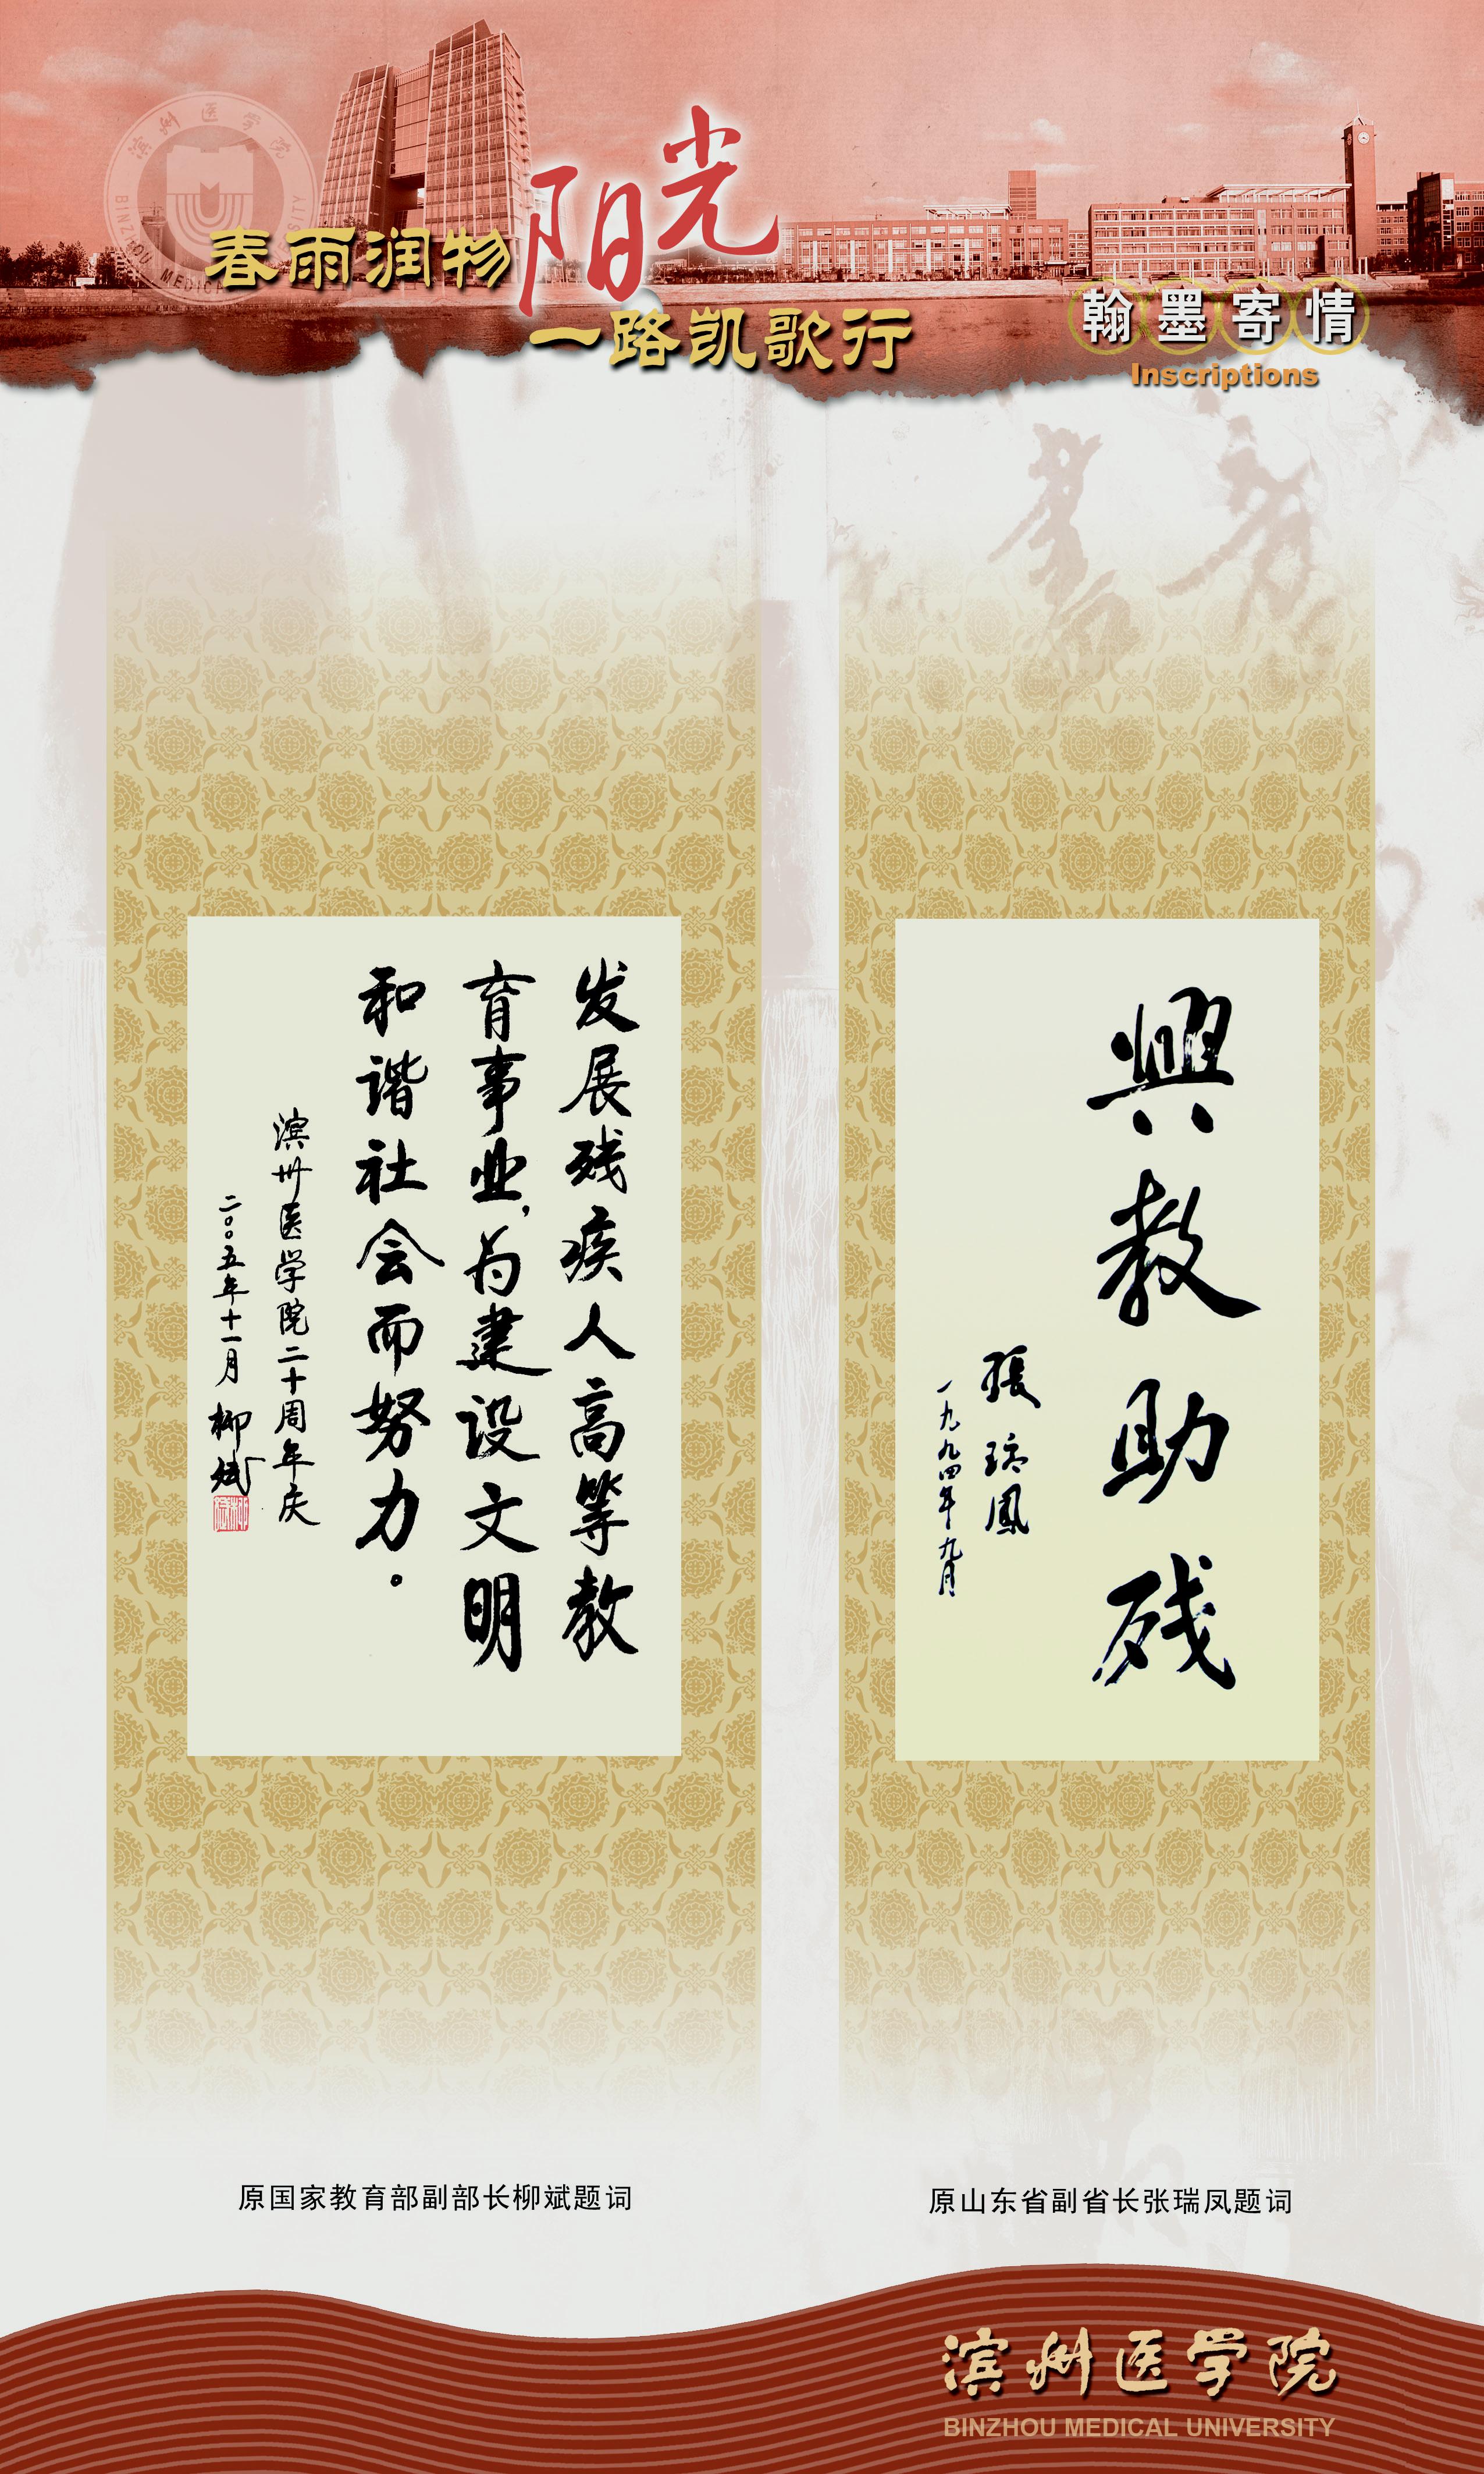 滨州医学院
BINZHOU MEDICAL UNIVERSITY
春雨润物
阳光
一路凯歌行
翰墨寄情
Inscriptions
发展残疾人高等教
育事业，为建设文明
和谐社会而努力。
滨州医学院二十周年庆
二〇〇五年十一月 柳斌
興教助残
張瑞鳳
一九九四年九月
原国家教育部副部长柳斌题词
原山东省副省长张瑞凤题词
滨州医学院
BINZHOU MEDICAL UNIVERSITY